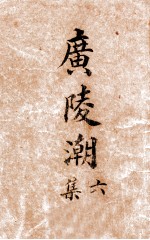 廣陵潮
六集